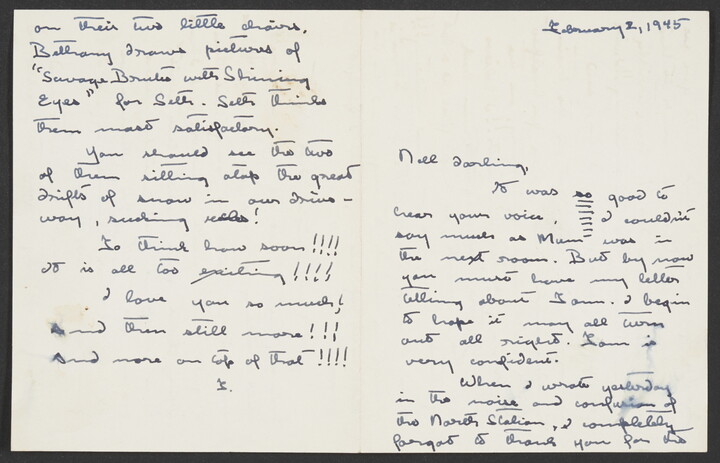 February 2, 1945
Nell darling,
It was so good to
hear your voice. I couldn't
say much as Mum was in
the next room. But by now
you must have my letter
telling about . I begin
to hope it may all turn
out all right. is
very confident.
When I wrote yesterday
in the noise and confusion of
the North Station, I completely
forgot to thank you for the
on their two little chairs.
Bethany draws pictures of
"Savage Brutes with Shining
Eyes" for Seth. Seth thinks
them most satisfactory.
You should see the two
of them sitting atop the great
drifts of snow in our drive-
way, sucking !
To think how soon!!!!
It is all too exciting!!!!
I love you so much!
And then still more!!!
And more on top of that!!!!